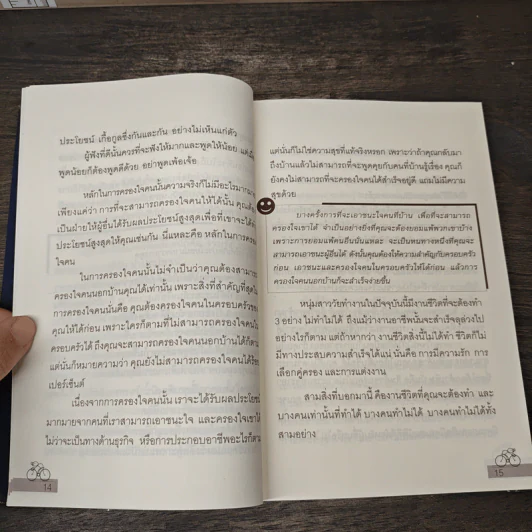 ประโยชน์ เกื้อกูลซึ่งกันและกัน อย่างไม่เห็นแก่ตัว
ผู้ฟังที่ดีนั้นควรที่จะฟังให้มากและพูดให้น้อย แต่เมื่อ
พูดน้อยก็ต้องพูดดีด้วย อย่าพูดเพ้อเจ้อ
หลักในการครองใจคนนั้นความจริงก็ไม่มีอะไรมาก
เพียงแค่ว่า การที่จะสามารถครองใจคนให้ได้นั้น คุณต้อง
เป็นฝ่ายให้ผู้อื่นได้รับผลประโยชน์สูงสุดเพื่อที่เขาจะได้
ประโยชน์สูงสุดให้คุณเช่นกัน นี่แหละคือ หลักในการครอง
ใจคน
ในการครองใจคนนั้นไม่จำเป็นว่าคุณต้องสามารถ
ครองใจคนนอกบ้านคุณได้เท่านั้น เพราะสิ่งที่สำคัญที่สุด
การครองใจคนนั้นคือ คุณต้องครองใจคนในครอบครัวของ
คุณให้ได้ก่อน เพราะใครก็ตามที่ไม่สามารถครองใจคนใน
ครอบครัวได้ ถึงคุณจะสามารถครองใจคนนอกบ้านได้ก็ตาม
แต่นั่นก็หมายความว่า คุณยังไม่สามารถครองใจคนได้ร้อย
เปอร์เซ็นต์
เนื่องจากการครองใจคนนั้น เราจะได้รับผลประโยชน์
มากมายจากคนที่เราสามารถเอาชนะใจ และครองใจเขาได้
ไม่ว่าจะเป็นทางด้านธุรกิจ หรือการประกอบอาชีพอะไรก็ตาม
14
แต่นั่นก็ไม่ใช่ความสุขที่แท้จริงหรอก เพราะว่าถ้าคุณกลับมา
ถึงบ้านแล้วไม่สามารถที่จะพูดคุยกับคนที่บ้านรู้เรื่อง คุณก็
ยังคงไม่สามารถที่จะครองใจคนได้สำเร็จอยู่ดี แถมไม่มีความ
สุขด้วย
บางครั้งการที่จะเอาชนะใจคนที่บ้าน เพื่อที่จะสามารถ
ครองใจเขาได้ จำเป็นอย่างยิ่งที่คุณจะต้องยอมแพ้พวกเขาบ้าง
เพราะการยอมแพ้คนอื่นนั่นแหละ จะเป็นหนทางหนึ่งที่คุณจะ
สามารถเอาชนะผู้อื่นได้ ดังนั้นคุณต้องให้ความสำคัญกับครอบครัว
ก่อน เอาชนะและครองใจคนในครอบครัวให้ได้ก่อน แล้วการ
ครองใจคนนอกบ้านก็จะสำเร็จง่ายขึ้น
หนุ่มสาววัยทำงานในปัจจุบันนี้มีงานชีวิตที่จะต้องทำ
3 อย่าง ไม่ทำไม่ได้ ถึงแม้ว่างานอาชีพนั้นจะสำเร็จลุล่วงไป
อย่างไรก็ตาม แต่ถ้าหากว่า งานชีวิตสิ่งนี้ไม่ได้ทำ ชีวิตก็ไม่
มีทางประสบความสำเร็จได้แน่ นั่นคือ การมีความรัก การ
เลือกคู่ครอง และการแต่งงาน
สามสิ่งที่บอกมานี้ คืองานชีวิตที่คุณจะต้องทำ และ
บางคนเท่านั้นที่ทำได้ บางคนทำไม่ได้ บางคนทำไม่ได้ทั้ง
สามอย่าง
15